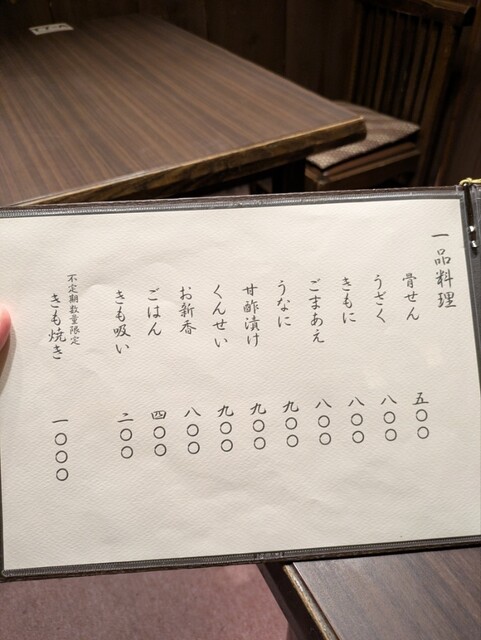 一品料理
骨せん 五〇〇
うざく 八〇〇
きもに 八〇〇
ごまあえ 八〇〇
うなに 九〇〇
甘酢漬け 九〇〇
くんせい 九〇〇
お新香 八〇〇
ごはん 四〇〇
きも吸い 二〇〇
不定期数量限定
きも焼き 一〇〇〇